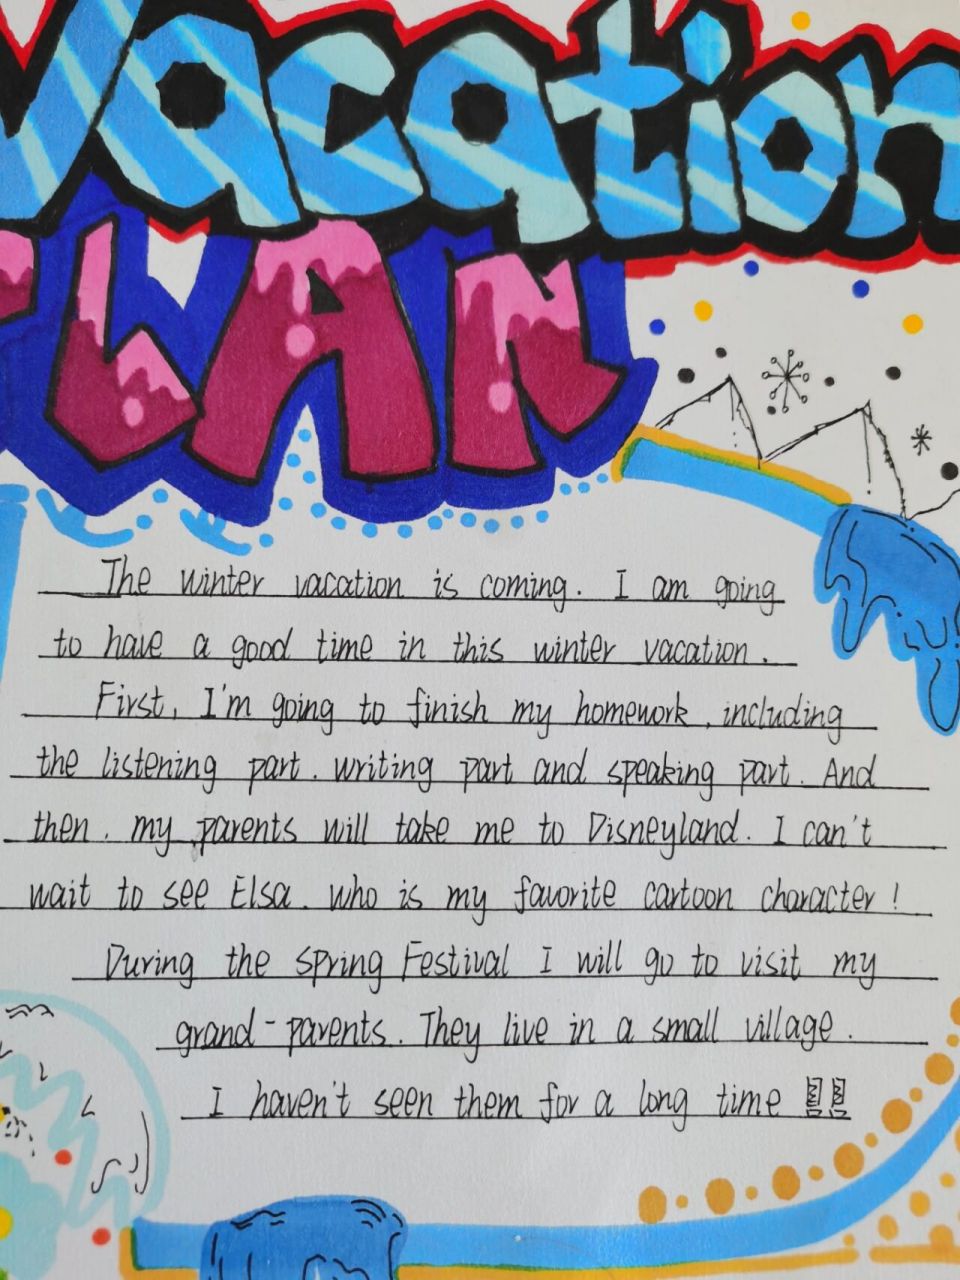 Vacation
PLAN
The winter vacation is coming. I am going
to have a good time in this winter vacation.
First, I'm going to finish my homework, including
the listening part, writing part and speaking part. And
then, my parents will take me to Disneyland. I can't
wait to see Elsa, who is my favorite cartoon character!
During the spring Festival I will go to visit my
grand-parents. They live in a small village.
I haven't seen them for a long time